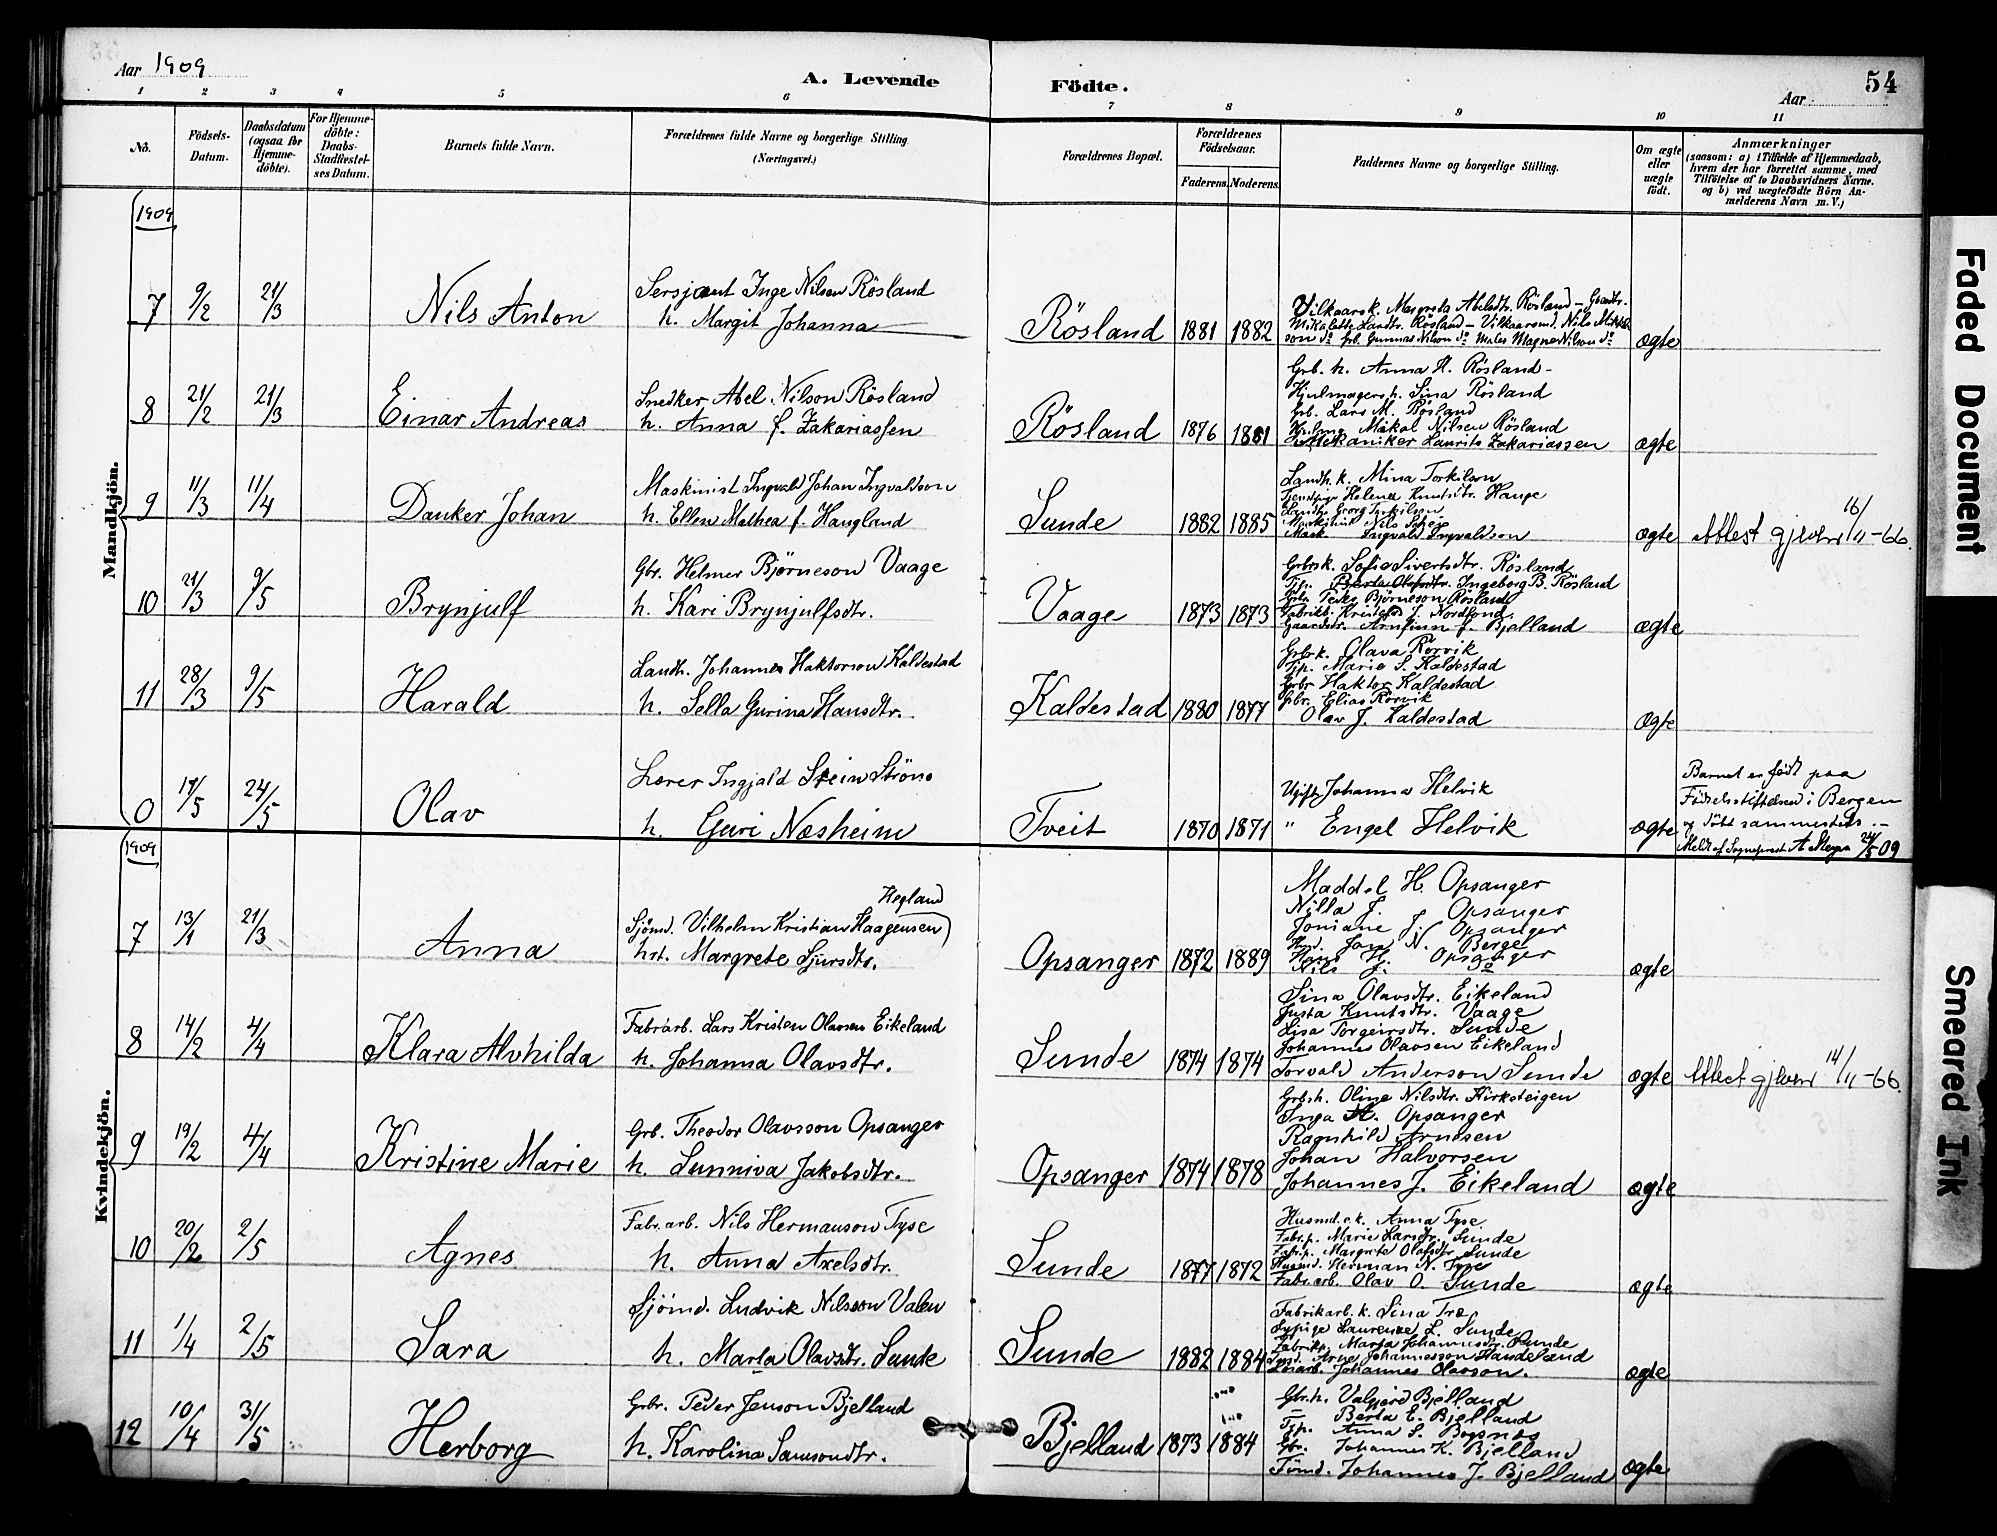 Aar 1909
A. Levende Födte.
Aar
54
1 2 3 4 5 6 7 8 9 10 11
No.
Födsels-Datum.
Daabsdatum (ogsaa for Hjemme-döbte).
For Hjemme-döbte: Daabs-Stadfæstel-ses Datum.
Barnets fulde Navn.
Forældrenes fulde Navne og borgerlige Stilling (Næringsvei.)
Forældrenes Bopæl.
Forældrenes Födselsaar.
Faderens. Moderens.
Faddernes Navne og borgerlige Stilling.
Om ægte eller uægte födt.
Anmærkninger
(saasom: a) i Tilfælde af Hjemmedaab,
hvem der har forrettet samme, med
Tilföielse af to Daabsvidners Navne.
og b) ved uægtefödte Börn An-
melderens Navn m. V.)
Mandkjön.
1909
7 9/2 21/3 Nils Anton
Sersjant Inge Nilsen Rösland
h. Margit Johanna
Rösland 1881 1882
Vilkaarsk. Margreta Abelsdtr. Rösland - Gaardbr.
Mikalette Larsdtr. Rösland - Vilkaarsmd. Nils Mikkel-
son do Grb. Gunnar Nilson do Mates Magne Nilson do
ægte
8 21/2 21/3 Einar Andreas
Snedker Abel Nilson Rösland
h. Anna f. Zakariassen
Rösland 1876 1881
Grb. h. Anna H. Rösland -
Hjulmagersh. Sina Rösland
Grb. Lars M. Rösland
Mikal Nilsen Rösland
Mekaniker Laurits Zakariassen
ægte
9 11/3 11/4 Danker Johan
Maskinist Ingvald Johan Ingvaldson
h. Ellen Mathea f. Haugland
Sunde 1882 1885
Landh. k. Mina Torkilson
Tjenestpige Helena Knutsdtr. Hauge
Landh. Georg Torkilson
Maskinist Nils
Mask. Ingvald Ingvaldson
ægte
Attest gjeven 16/11-66.
10 21/3 9/5 Brynjulf
Gbr. Helmer Bjørneson Vaage
h. Kari Brynjulfsdtr.
Vaage 1873 1873
Grbrsk. Sofie Sivertsdtr. Rösland
Tjp. Berta Olafsdtr. Ingeborg B. Rösland
Grb. Peder Bjørneson Rösland
Fabrikb. Kristofer J. Nordfond
Gaardbr. Arnfinn J. Bjelland
ægte
11 28/3 9/5 Harald
Landh. Johannes Haktorson Kaldestad
h. Sella Gurina Hansdtr.
Kaldestad 1880 1877
Grbr k. Olava Rörvik
Tjp. Marie S. Kaldestad
Grbr Haktor Kaldestad
Gbr. Elias Rörvik
Olav J. Kaldestad
ægte
0 17/5 24/5 Olav
Lærer Ingjald Stein Ströno
h. Guri Næsheim
Tveit 1870 1871
Ugift Johanna Helvik
" Engel Helvik
ægte
Barnet er født paa
Födselsstiftelsen i Bergen
og döbt sammesteds.-
Meldt af Sogneprest A 24/5 09
Kvindekjön.
1909
7 13/1 21/3 Anna
Hegland
Sjömd. Vilhelm Kristian Haagensen)
hst. Margrete Sjursdtr.
Opsanger 1872 1889
Maddel H. Opsanger
Nilla J. Opsanger
Joniane J. Opsanger
Jon N. Berge
Hans J. Opsanger
Nils J. do
ægte
8 14/2 4/4 Klara Alvhilda
Fabrarb. Lars Kristen Olavsen Eikeland
h. Johanna Olavsdtr.
Sunde 1874 1874
Sina Olavsdtr. Eikeland
Justa Knutsdtr. Vaage
Lisa Torgeirsdtr. Sunde
Johannes Olavsen Eikeland
Torvald Anderson Sunde
ægte
Attest gjeven 14/11-66.
9 19/2 4/4 Kristine Marie
Grb. Theodor Olavsson Opsanger
h. Sunniva Jakobsdtr.
Opsanger 1874 1878
Grbsh. Oline Nilsdtr. Kirksteigen
Inga H. Opsanger
Ragnhild Arnesen
Johan Halvorsen
Johannes J. Eikeland
ægte
10 20/2 2/5 Agnes
Fabr. arb. Nils Hermanson Tyse
h. Anna Axelsdtr.
Sunde 1877 1872
Husmd. e.k. Anna Tyse
Fabr.p. Marie Larsdtr. Sunde
Fabr.p. Margrete Olafsdtr. Sunde
Husmd. Herman N. Tyse
Fabr.arb. Olav O. Sunde
ægte
11 1/4 2/5 Sara
Sjömd. Ludvik Nilsson Valen
h. Marta Olavsdtr. Sunde
Sunde 1882 1884
Fabrikarb. k. Sina Træ
Sypige Laurense L. Sunde
Fabrikp. Marta Johannesdtr. Sunde
Arne Johannesson Handeland
Johannes Olavson.
ægte
12 10/4 31/5 Herborg
Grbr. Peder Jenson Bjelland
h. Karolina Samsondtr.
Bjelland 1873 1884
Gbr.h. Valgjerd Bjelland
— Berta E. Bjelland
Tjp. Anna S. Bogsnes
Gbr. Johannes K. Bjelland
Tömd. Johannes J. Bjelland
ægte
Faded Document
Smeared Ink